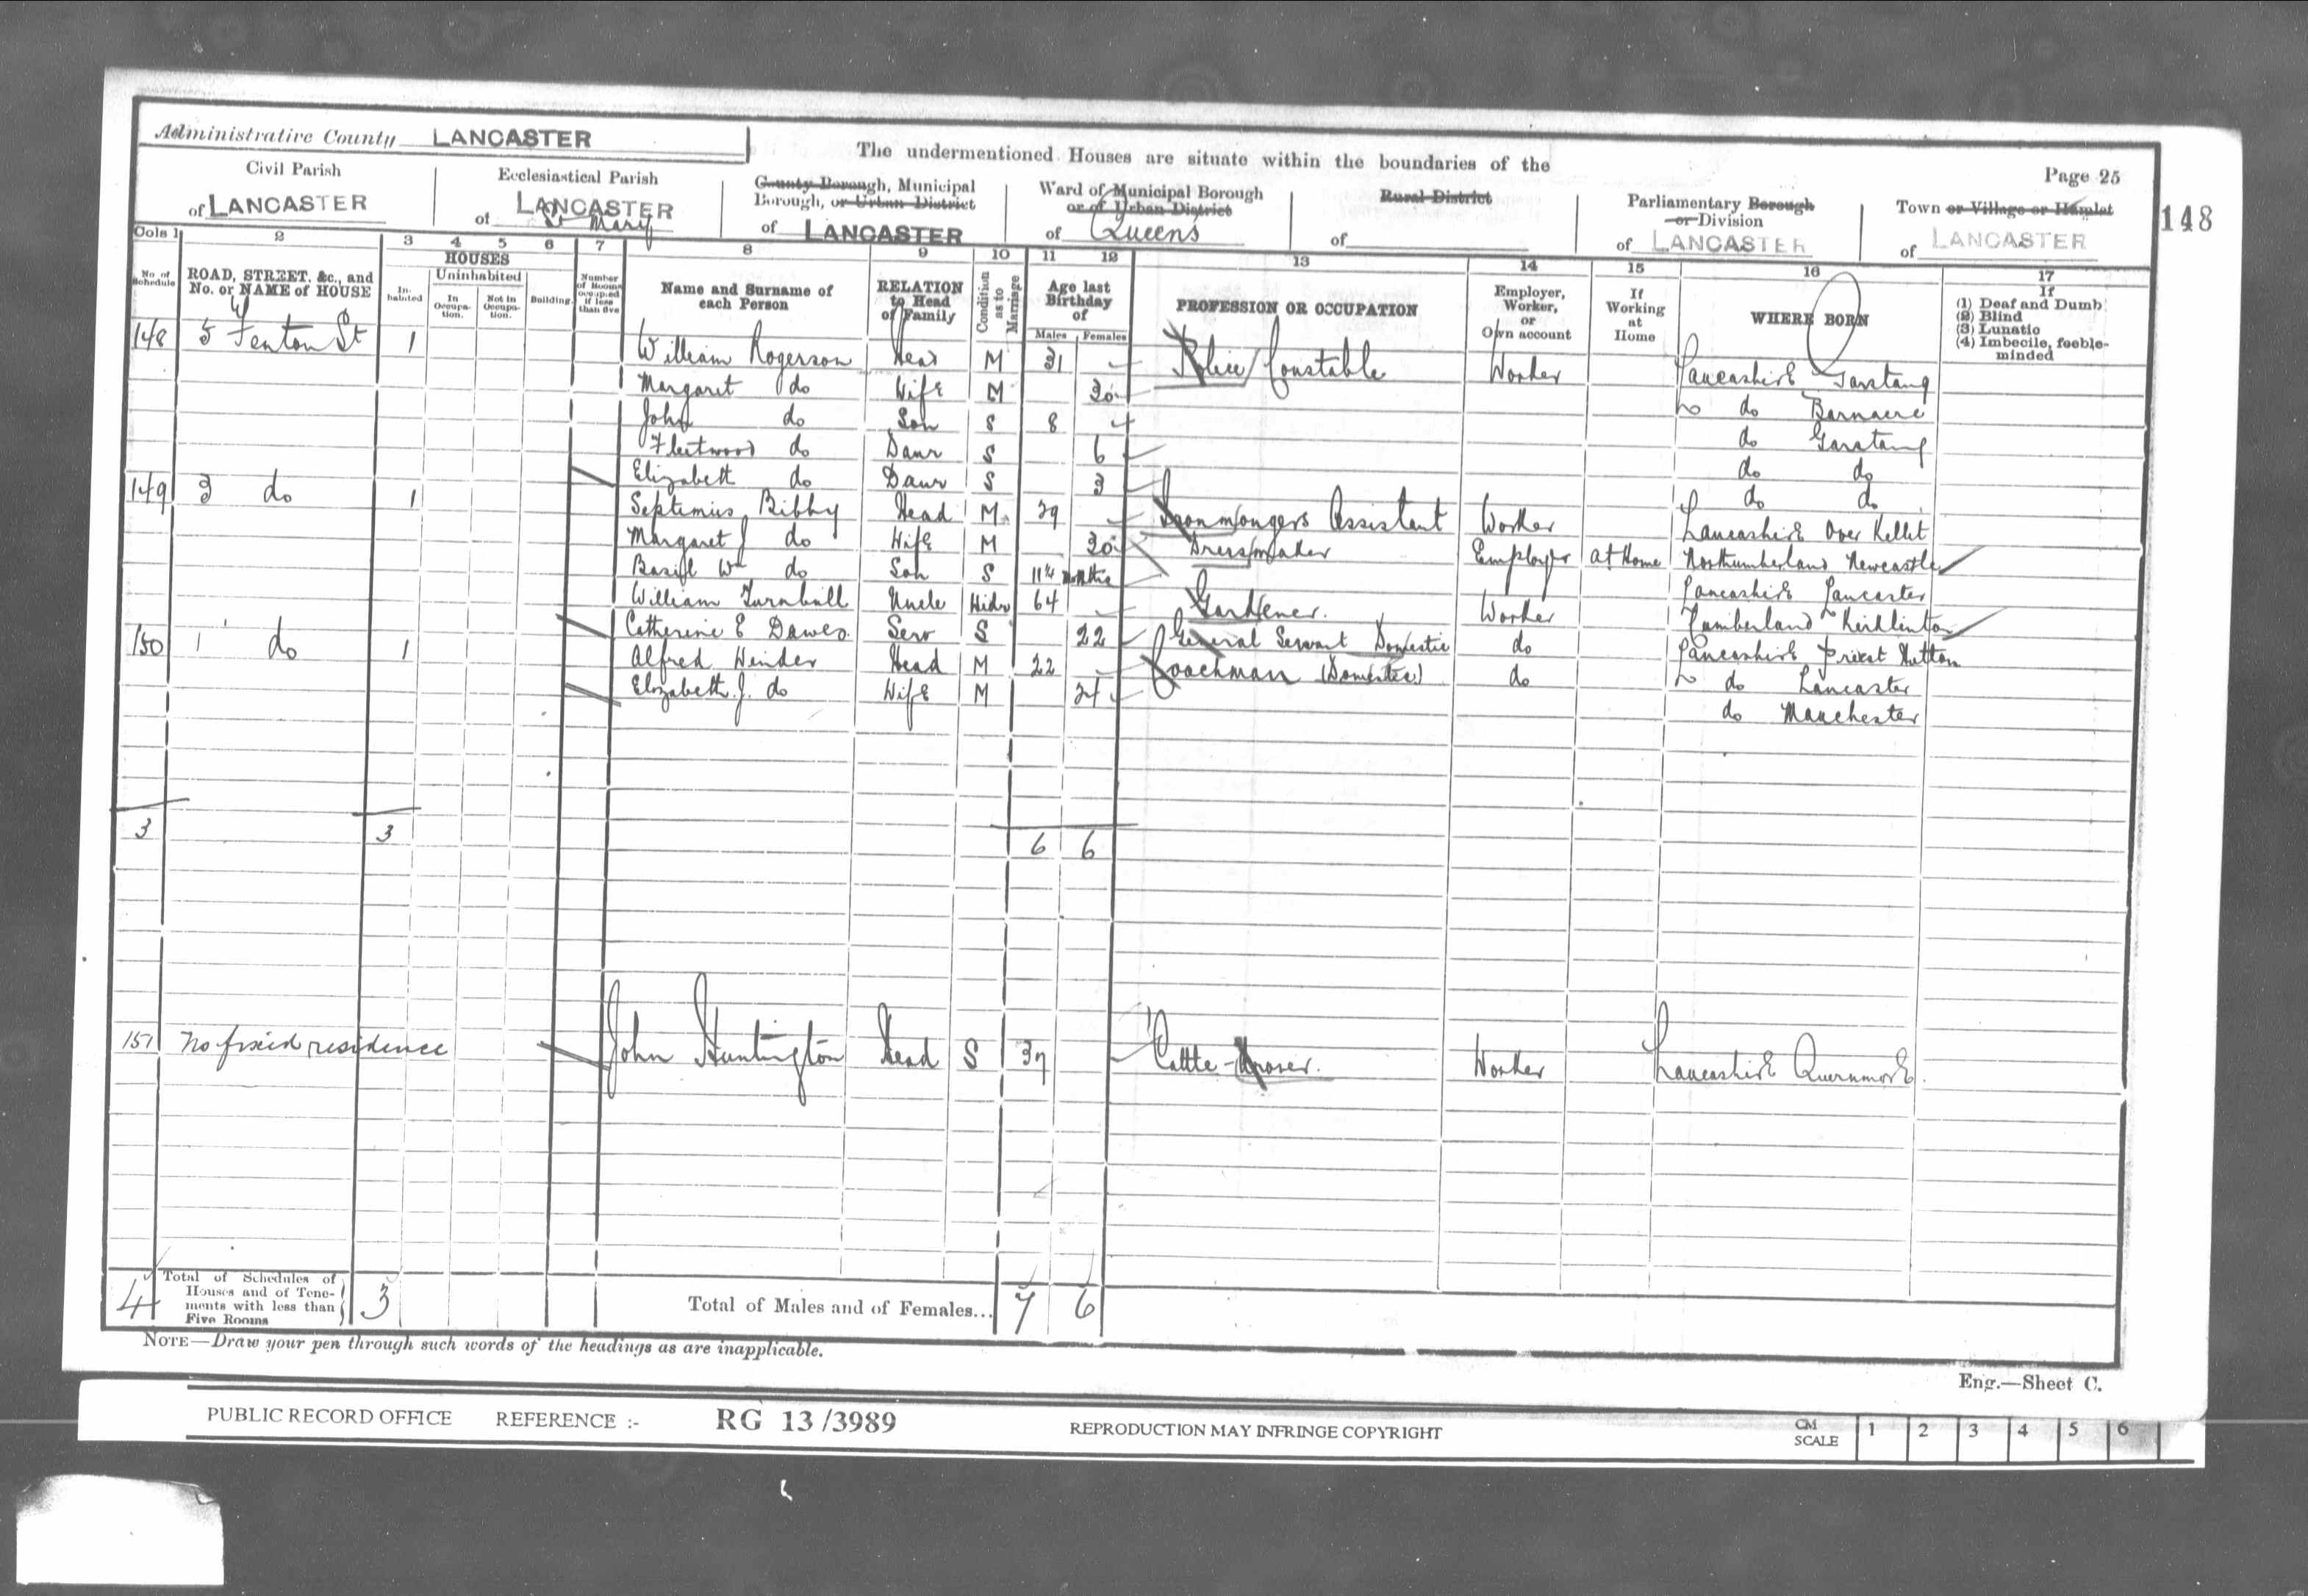 Administrative County LANCASTER
The undermentioned Houses are situate within the boundaries of the
Page 25
148
Civil Parish
of LANCASTER
Ecclesiastical Parish
of LANCASTER
St Mary
County Borough, Municipal
Borough, or Urban District
of LANCASTER
Ward of Municipal Borough
or of Urban District
of Queens
Rural District
of
Parliamentary Borough
or Division
of LANCASTER
Town or Village or Hamlet
of LANCASTER
Cols 1 2 3 4 5 6 7 8 9 10 11 12 13 14 15 16 17
No. of Schedule
ROAD, STREET, &c., and
No. or NAME of HOUSE
HOUSES
Inhabited
Uninhabited
In Occupation.
Not in Occupation.
Building.
Number of Rooms occupied if less than five
Name and Surname of
each Person
RELATION
to Head
of Family
Condition as to Marriage
Age last
Birthday
of
Males Females
PROFESSION OR OCCUPATION
Employer,
Worker,
or
Own account
If
Working
at
Home
WHERE BORN
If
(1) Deaf and Dumb
(2) Blind
(3) Lunatic
(4) Imbecile, feeble-
minded
148 5 Fenton St 1 William Rogerson Head M 31 Police Constable Worker Lancashire Garstang
Margaret do Wife M 30 do Barnacre
John do Son S 8 do Garstang
Fleetwood do Daur S 6 do do
Elizabeth do Daur S 3 do do
149 3 do 1 Septimius Bibby Head M 29 Ironmongers Assistant Worker Lancashire Over Kellet
Margaret J do Wife M 30 Dressmaker Employer at Home Northumberland Newcastle
Basil Wm do Son S 11 months Lancashire Lancaster
William Turnbull Uncle Widr 64 Gardener. Worker Cumberland Kirklinton
Catherine E Dawes Serv S 22 General Servant Domestic do Lancashire Priest Hutton
150 1 do 1 Alfred Winder Head M 22 Coachman (Domestic) do do Lancaster
Elizabeth J. do Wife M 24 do Manchester
3 3 6 6
151 No fixed residence John Huntington Head S 37 Cattle-Drover. Worker Lancashire Quernmore
4 Total of Schedules of
Houses and of Tene-
ments with less than
Five Rooms
3 Total of Males and of Females... 7 6
NOTE—Draw your pen through such words of the headings as are inapplicable.
Eng.—Sheet C.
PUBLIC RECORD OFFICE REFERENCE :- RG 13/3989 REPRODUCTION MAY INFRINGE COPYRIGHT CM SCALE 1 2 3 4 5 6